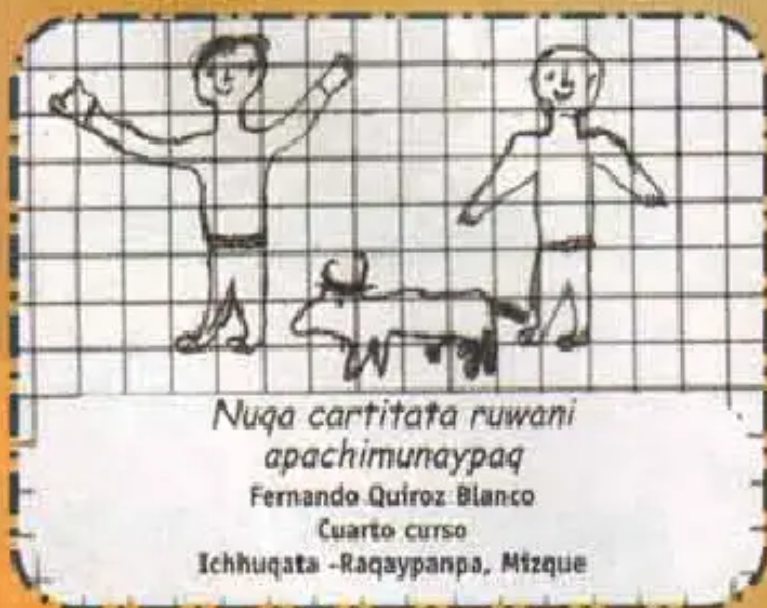 Nuqa cartitata ruwani
apachimunaypaq
Fernando Quiroz Blanco
Cuarto curso
Ichhuqata -Raqaypanpa, Mizque